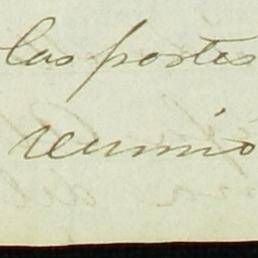 las partes
reunio